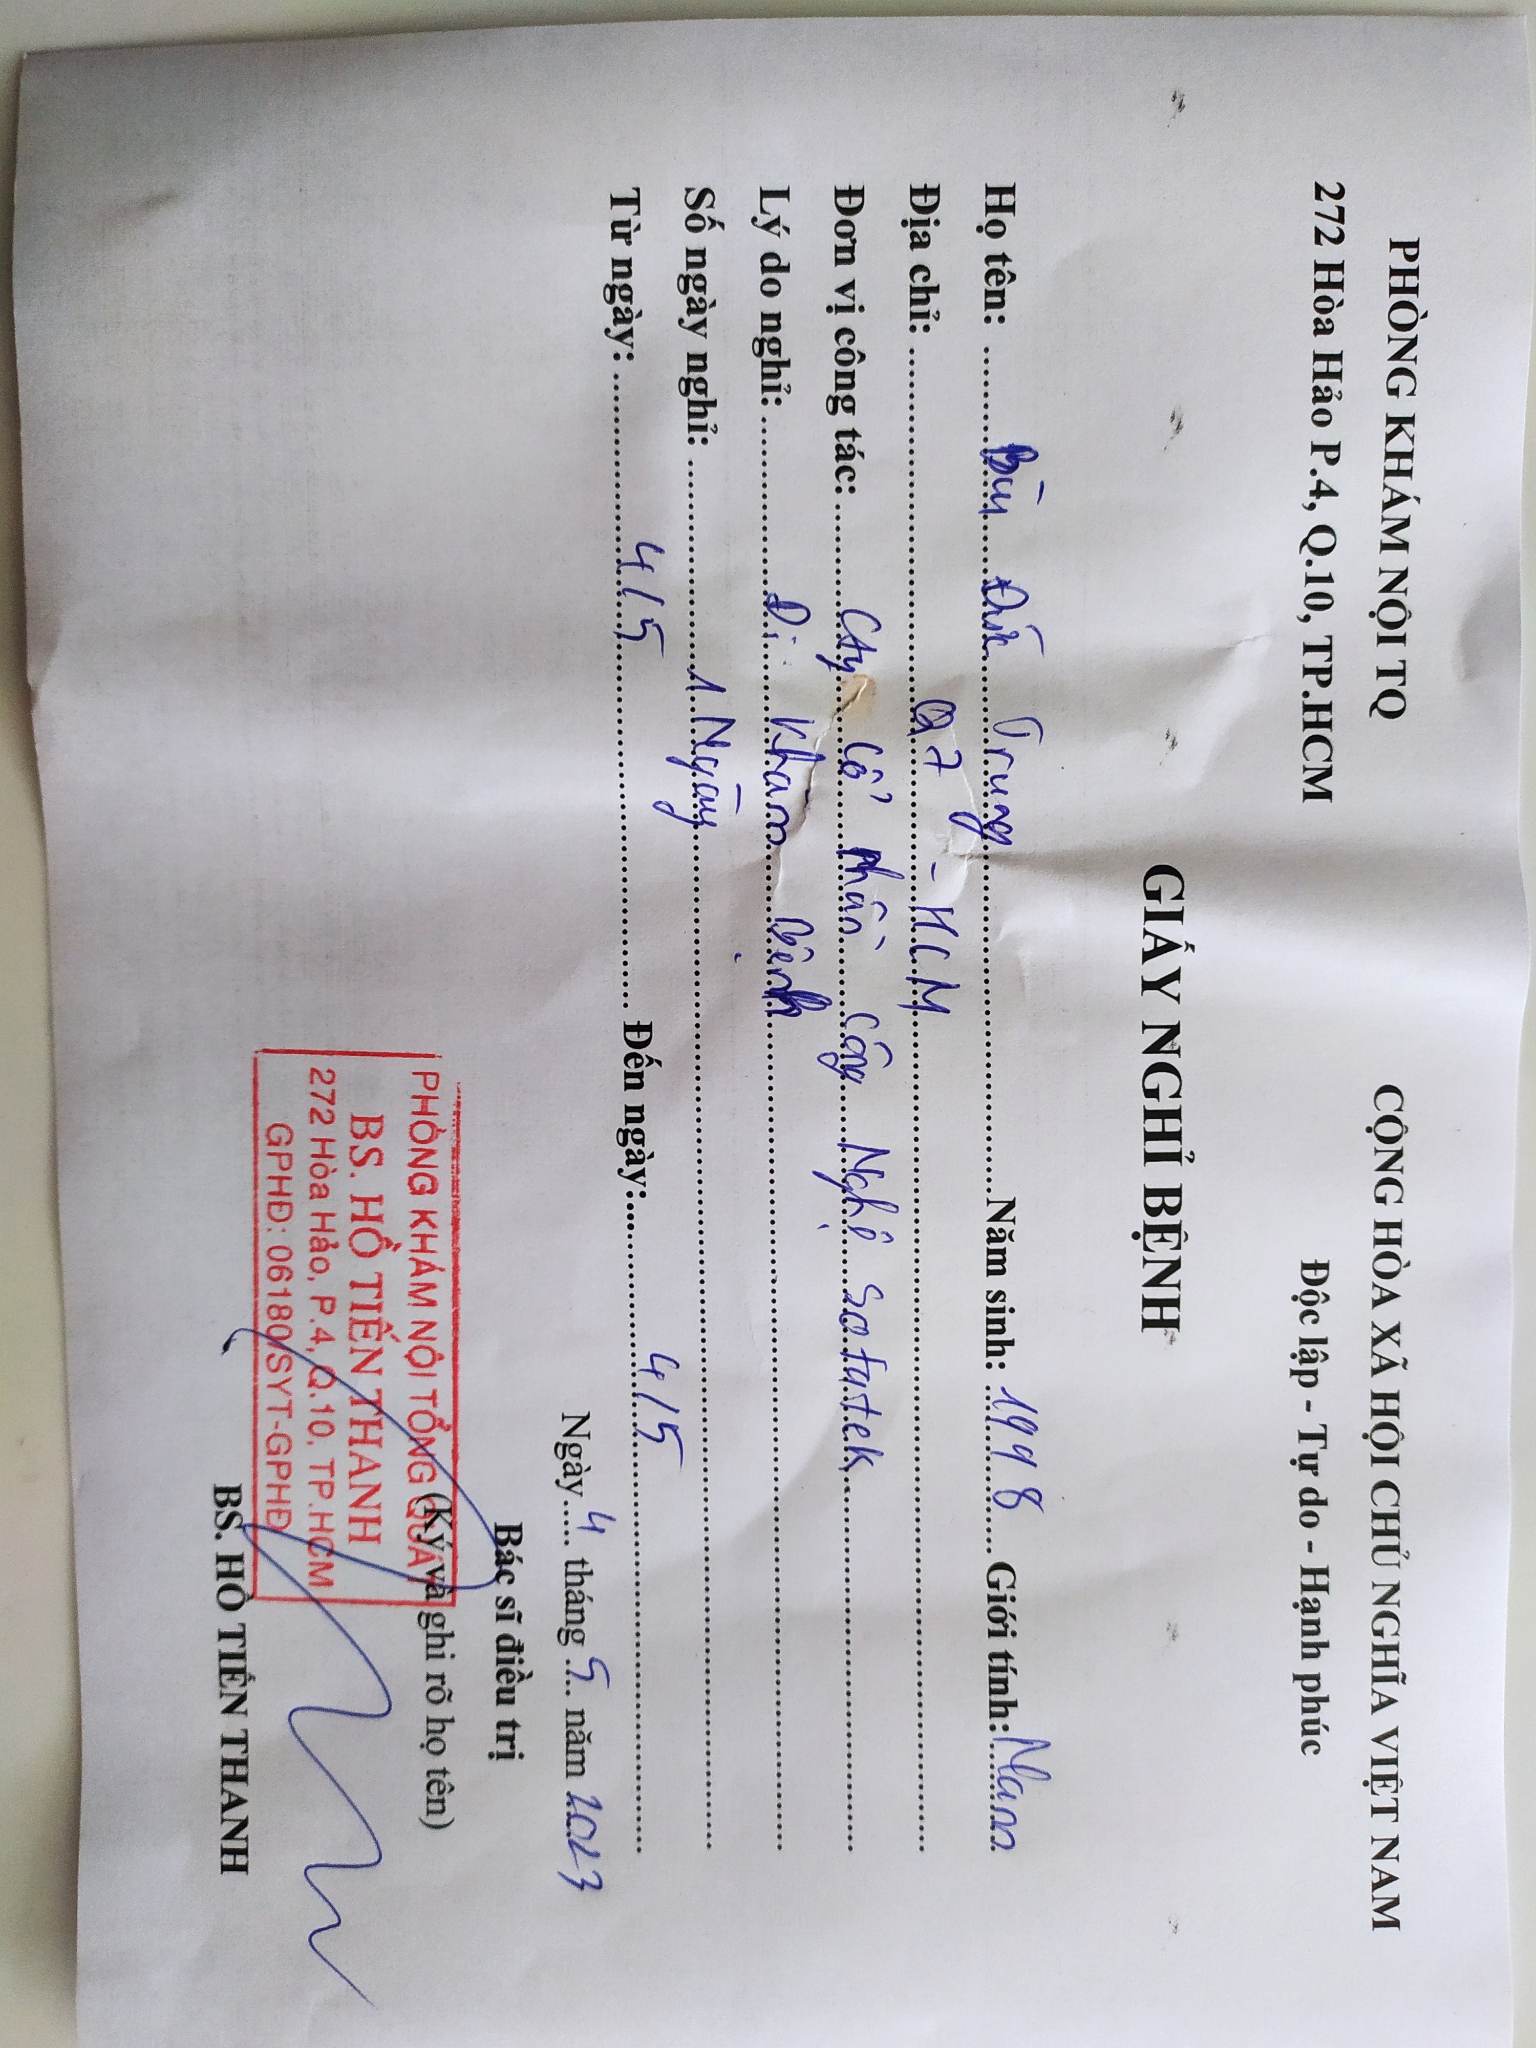 PHÒNG KHÁM NỘI TQ
272 Hòa Hảo P.4, Q.10, TP.HCM
CỘNG HÒA XÃ HỘI CHỦ NGHĨA VIỆT NAM
Độc lập - Tự do - Hạnh phúc
GIẤY NGHỈ BỆNH
Họ tên: Bùi Đức Trung Năm sinh: 1998 Giới tính: Nam
Địa chỉ: Q7 - HCM
Đơn vị công tác: Cty Cổ Phần Công Nghệ Sofatek
Lý do nghỉ: Đi Khám Bệnh
Số ngày nghỉ: 1 Ngày
Từ ngày: 4/5 Đến ngày: 4/5
Ngày 4 tháng 5 năm 2023
Bác sĩ điều trị
(Ký và ghi rõ họ tên)
PHÒNG KHÁM NỘI TỔNG QUÁT
BS. HỒ TIẾN THANH
272 Hòa Hảo, P.4, Q.10, TP.HCM
GPHĐ: 06180/SYT-GPHĐ
BS. HỒ TIẾN THANH